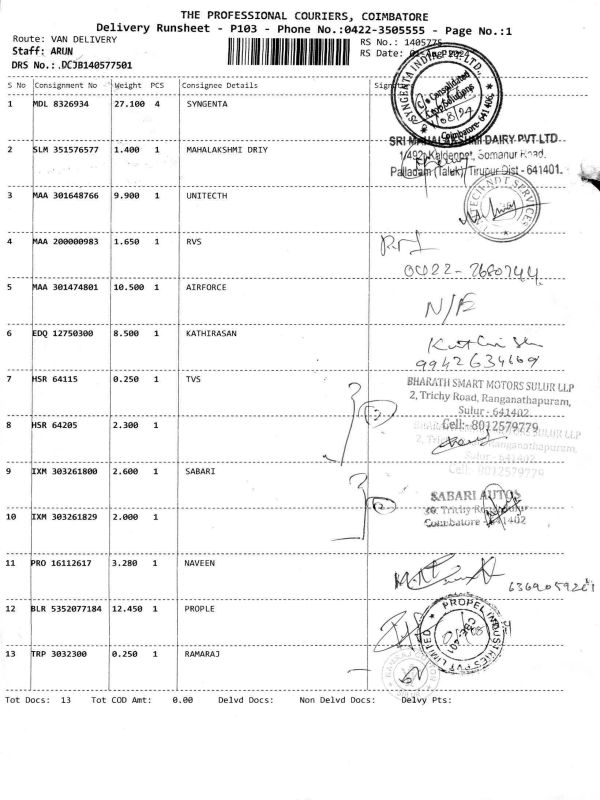 THE PROFESSIONAL COURIERS, COIMBATORE
Delivery Runsheet - P103 - Phone No.:0422-3505555 - Page No.:1
Route: VAN DELIVERY RS No.: 1405775
Staff: ARUN RS Date:
DRS No.:.DCJB140577501
S No Consignment No Weight PCS Consignee Details
1 MDL 8326934 27.100 4 SYNGENTA
2 SLM 351576577 1.400 1 MAHALAKSHMI DRIY
SRI MAHALAKSHMI DAIRY PVT LTD
Somanur Road,
Palladam (Taluk) Tirupur Dist - 641401.
3 MAA 301648766 9.900 1 UNITECTH
4 MAA 200000983 1.650 1 RVS
5 MAA 301474801 10.500 1 AIRFORCE
N/E
6 EDQ 12750300 8.500 1 KATHIRASAN
9942634669
7 HSR 64115 0.250 1 TVS
BHARATH SMART MOTORS SULUR LLP
2, Trichy Road, Ranganathapuram,
Sulur - 641402.
Cell:- 8012579779
8 HSR 64205 2.300 1
9 IXM 303261800 2.600 1 SABARI
SABARI AUTOS
Trichy
Coimbatore - 641402
10 IXM 303261829 2.000 1
11 PRO 16112617 3.280 1 NAVEEN
12 BLR 5352077184 12.450 1 PROPLE
PROPEL INDUSTRIES PVT LIMITED
13 TRP 3032300 0.250 1 RAMARAJ
Tot Docs: 13 Tot COD Amt: 0.00 Delvd Docs: Non Delvd Docs: Delvy Pts: